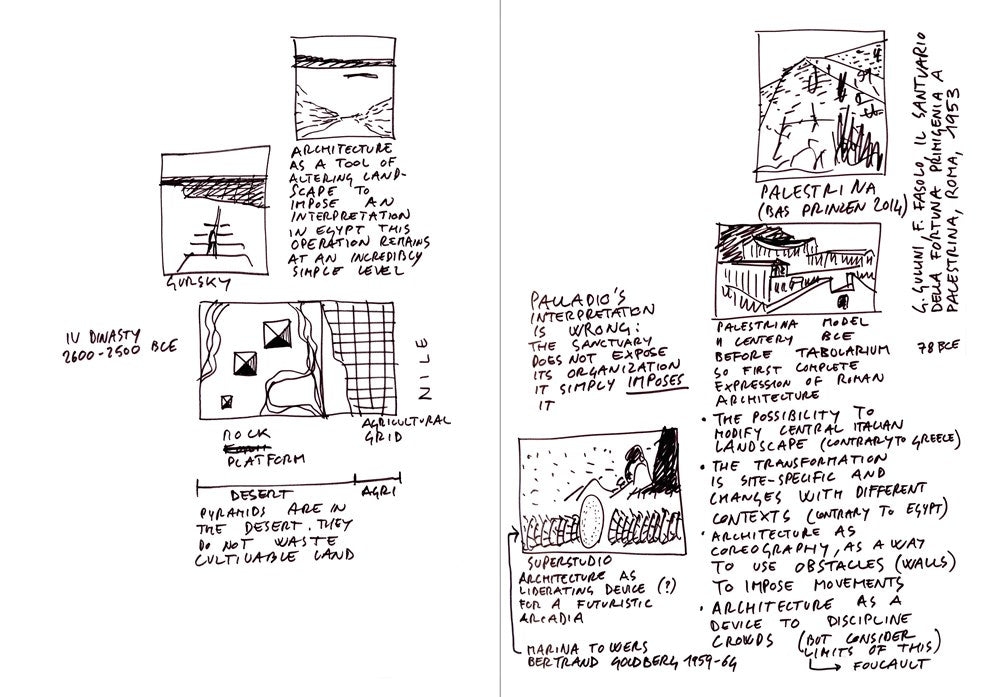 ARCHITECTURE
AS A TOOL OF
ALTERING LAND-
SCAPE TO
IMPOSE AN
INTERPRETATION
IN EGYPT THIS
OPERATION REMAINS
AT AN INCREDIBLY
SIMPLE LEVEL
GURSKY
IV DINASTY
2600-2500 BCE
NILE
AGRICULTURAL
GRID
ROCK
PLATFORM
DESERT
AGRI
PYRAMIDS ARE IN
THE DESERT. THEY
DO NOT WASTE
CULTIVABLE LAND
PALESTRINA
(BAS PRINCEN 2014)
G. GULLINI F. FASOLO, IL SANTUARIO
DELLA FORTUNA PRIMIGENIA A
PALESTRINA, ROMA, 1953
PALLADIO'S
INTERPRETATION
IS WRONG:
THE SANCTUARY
DOES NOT EXPOSE
ITS ORGANIZATION
IT SIMPLY IMPOSES
IT
PALESTRINA MODEL
II CENTERY BCE
BEFORE TABOLARIUM 78 BCE
SO FIRST COMPLETE
EXPRESSION OF ROMAN
ARCHITECTURE
• THE POSSIBILITY TO
MODIFY CENTRAL ITALIAN
LANDSCAPE (CONTRARY TO GREECE)
• THE TRANSFORMATION
IS SITE-SPECIFIC AND
CHANGES WITH DIFFERENT
CONTEXTS (CONTRARY TO EGYPT)
• ARCHITECTURE AS
COREOGRAPHY, AS A WAY
TO USE OBSTACLES (WALLS)
TO IMPOSE MOVEMENTS
• ARCHITECTURE AS A
DEVICE TO DISCIPLINE
CROWDS (BUT CONSIDER
LIMITS OF THIS)
FOUCAULT
SUPERSTUDIO
ARCHITECTURE AS
LIBERATING DEVICE (?)
FOR A FUTURISTIC
ARCADIA
MARINA TOWERS
BERTRAND GOLDBERG 1959-64